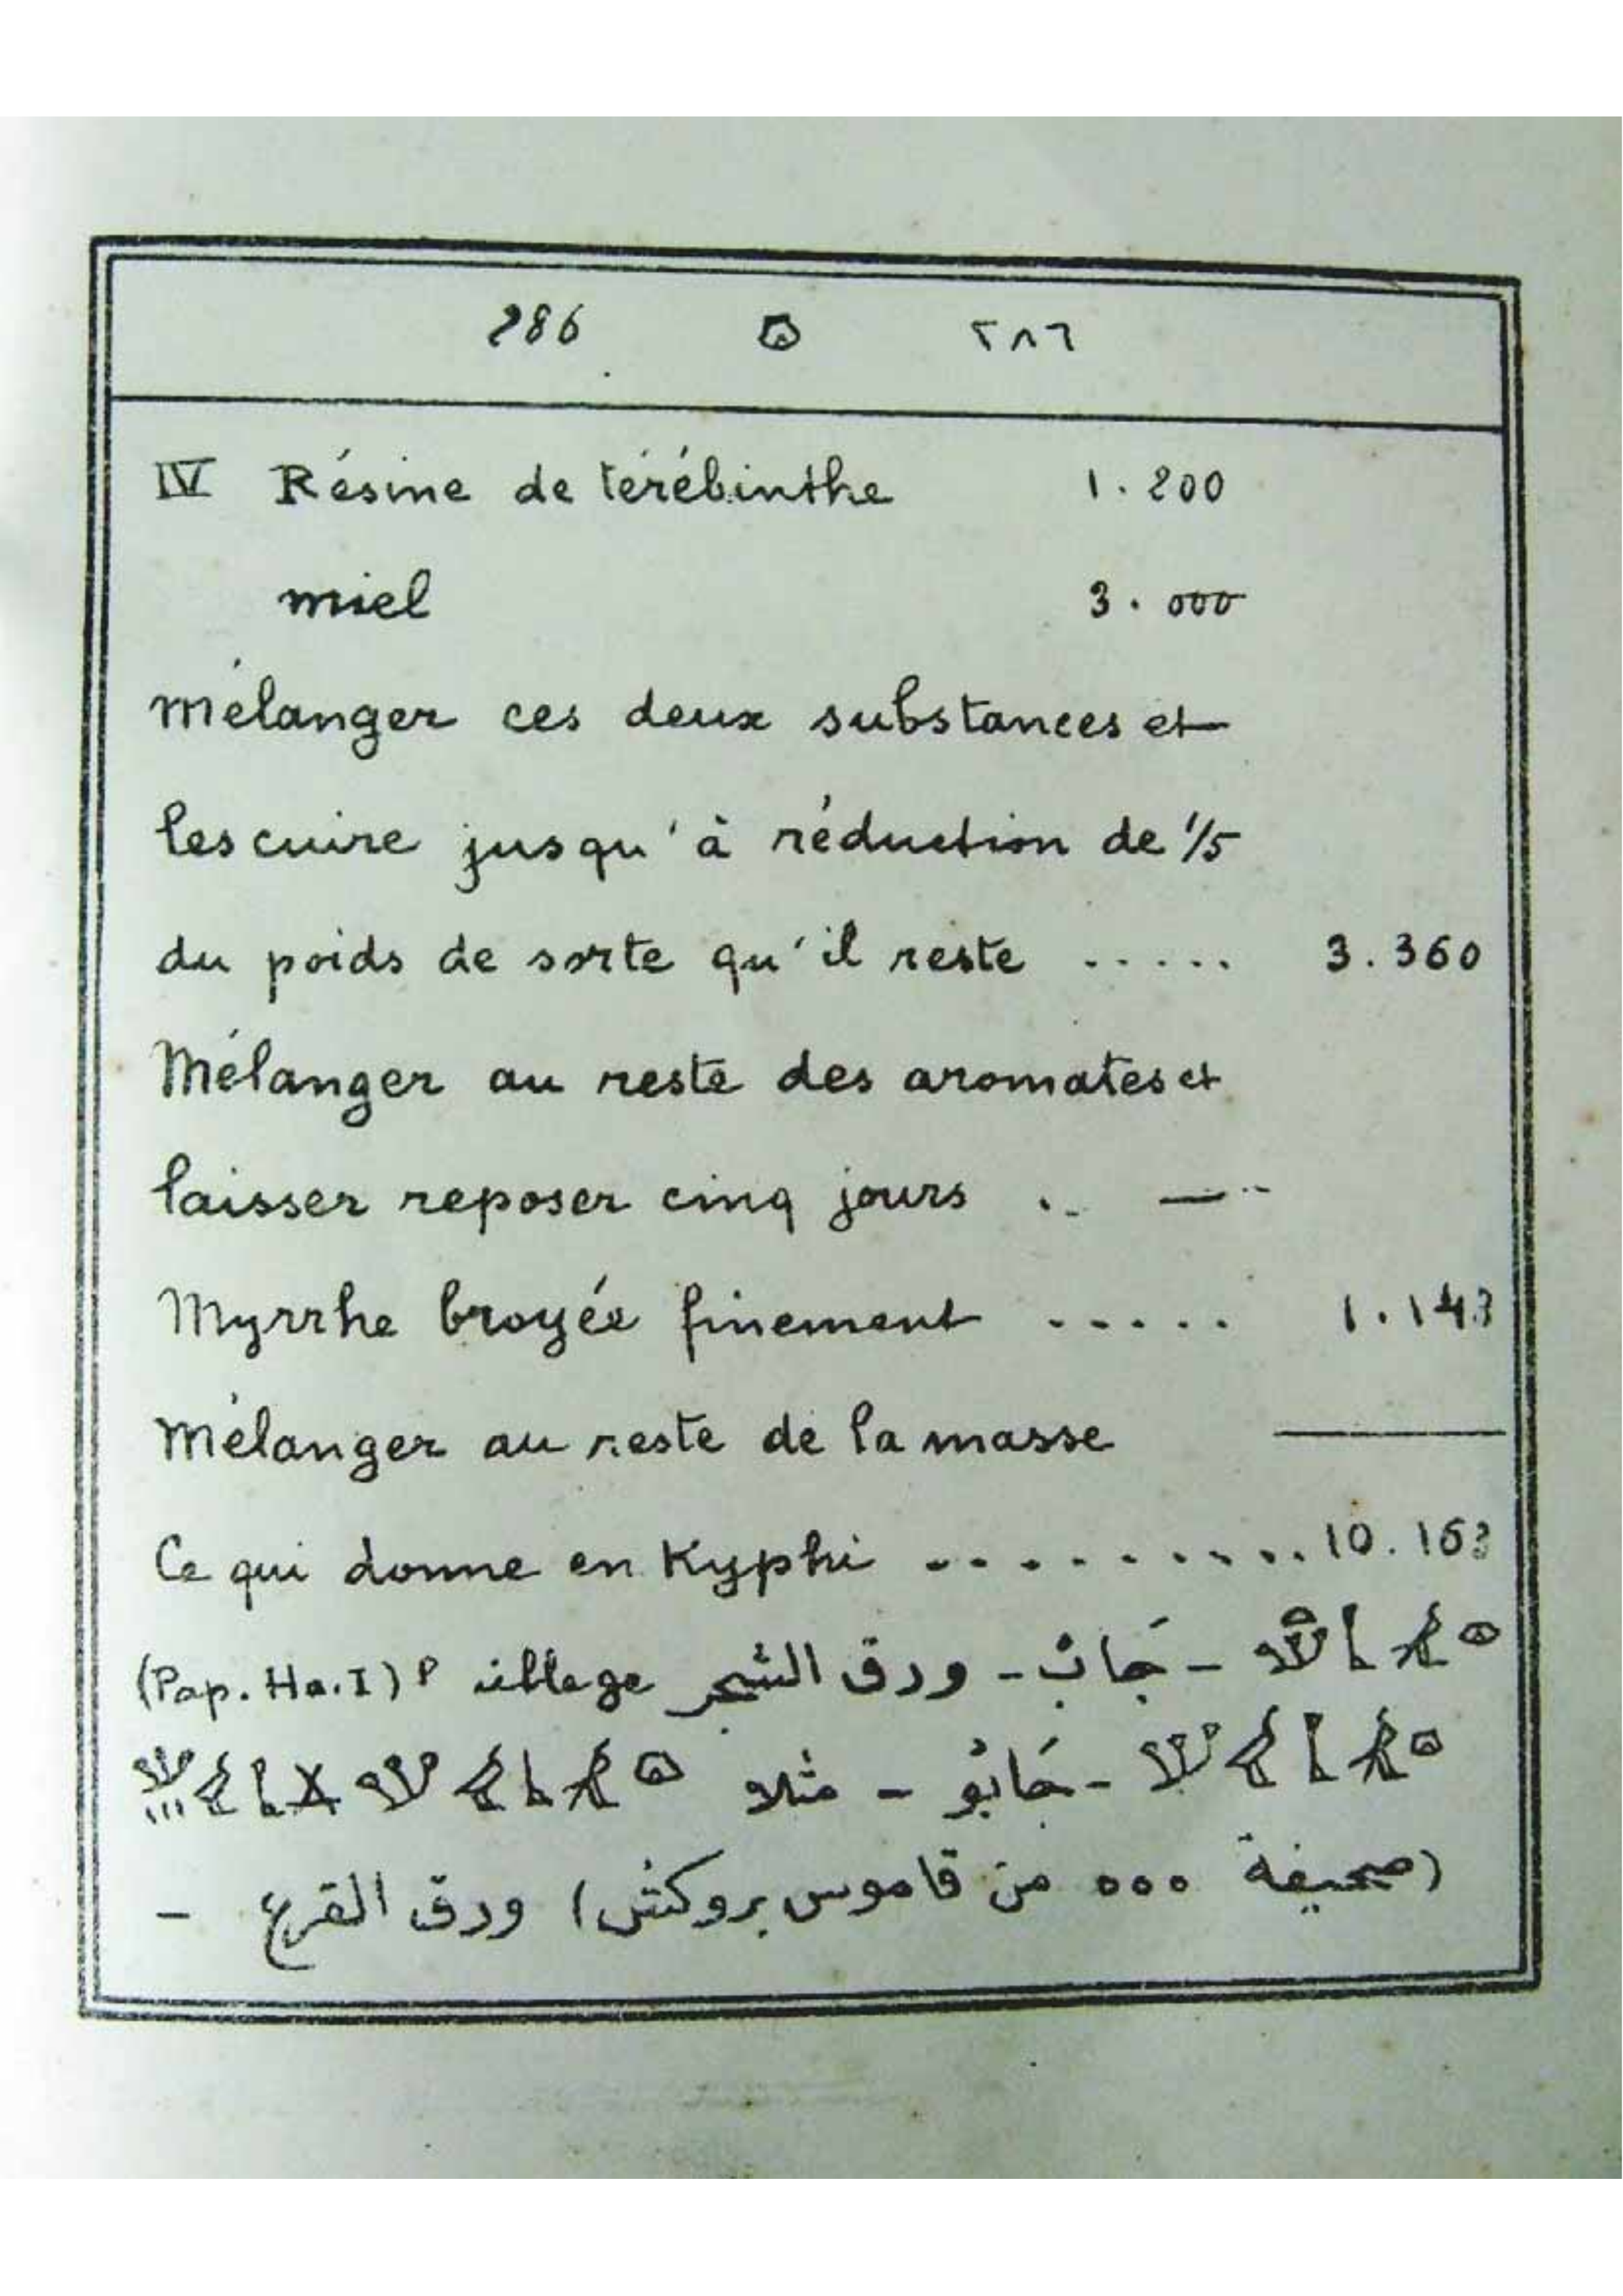 286 ٢٨٦
IV Résine de térébinthe 1.200
miel 3.000
Mélanger ces deux substances et
les cuire jusqu'à réduction de 1/5
du poids de sorte qu'il reste ..... 3.360
Mélanger au reste des aromates et
laisser reposer cinq jours .. — ..
Myrrhe broyée finement ..... 1.143
Mélanger au reste de la masse
Ce qui donne en Kyphi .......... 10.163
- ورق الشجر (Pap. Ha. I)
- مثلا
(صحيفة ٥٥٥ من قاموس بروكش) ورق القرع -